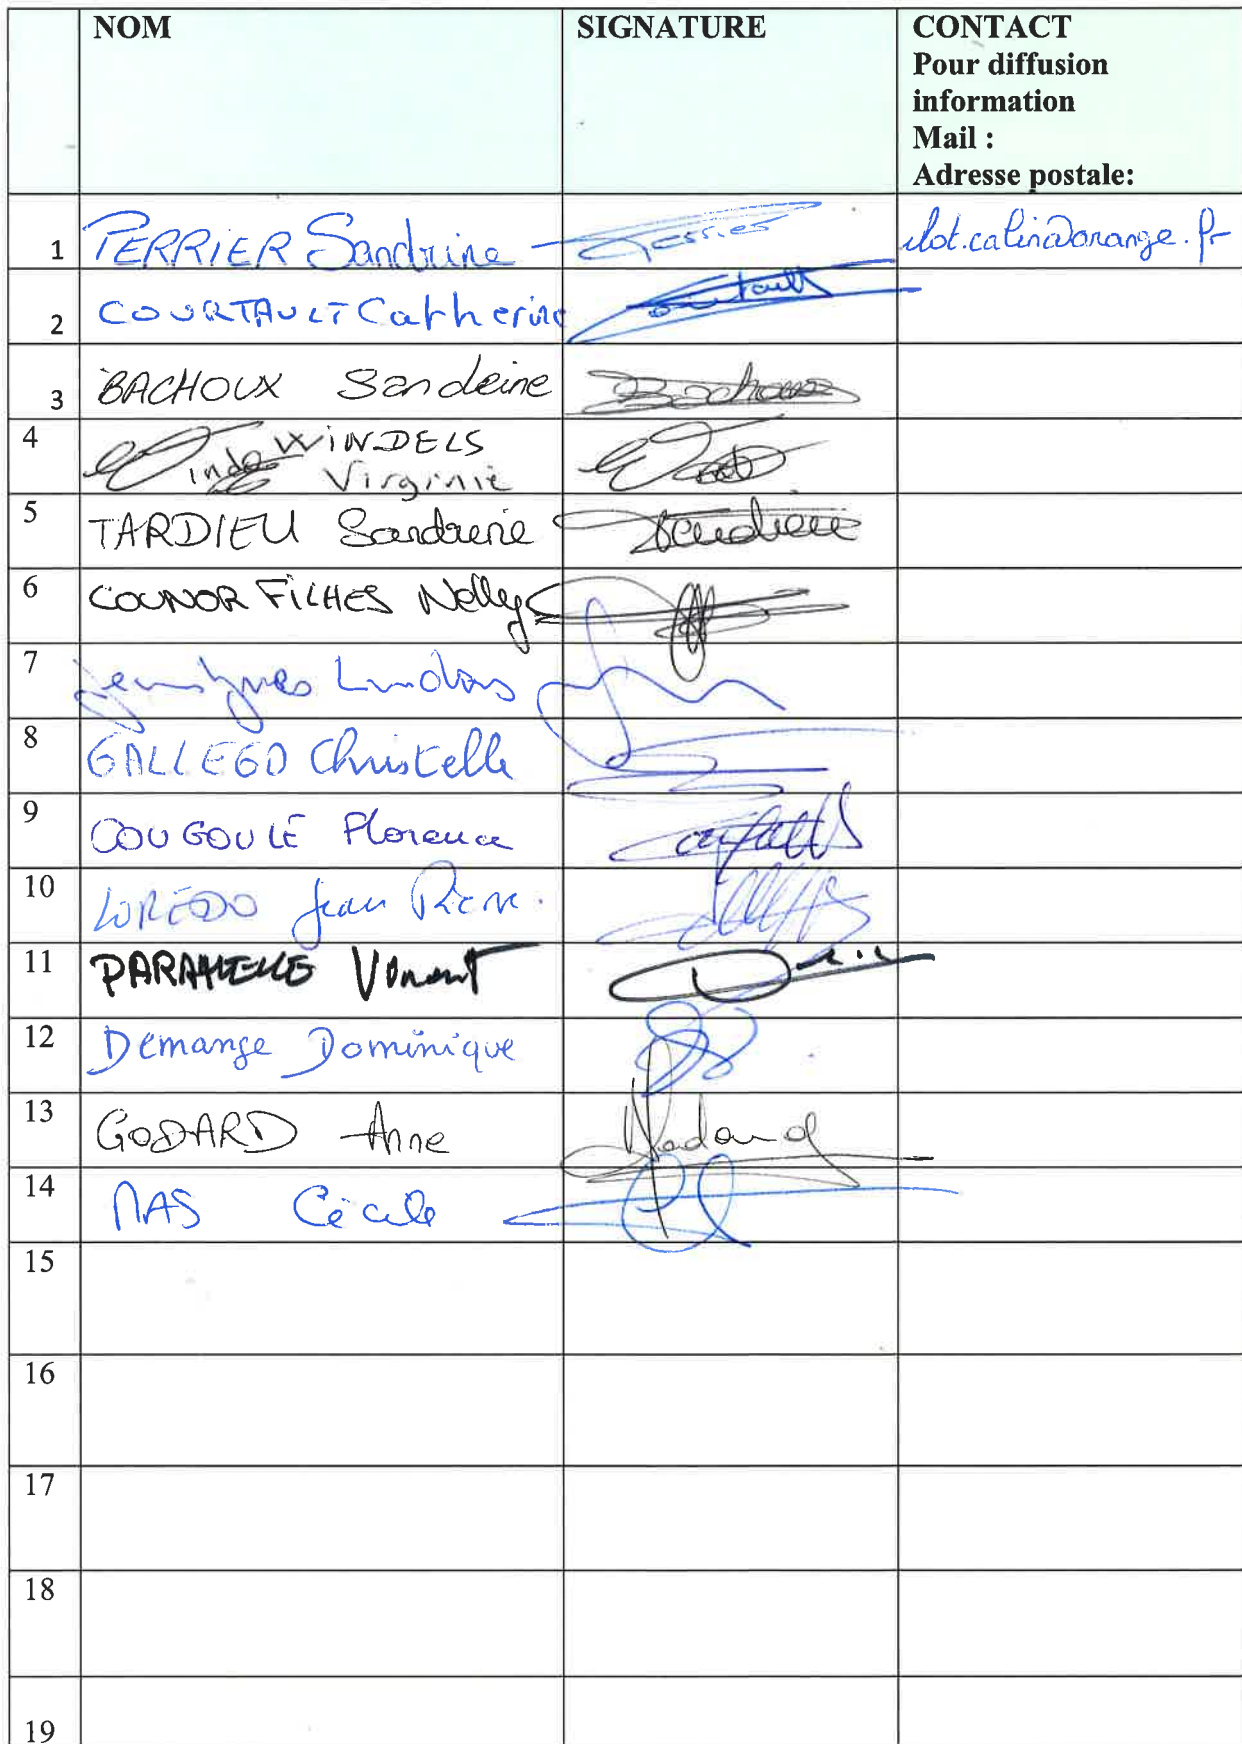 NOM SIGNATURE CONTACT
Pour diffusion
information
Mail :
Adresse postale:
1 PERRIER Sandrine Perrier ilot.calin@orange.fr
2 COURTAULT Catherine Courtault
3 BACHOUX Sandrine Bachoux
4 WINDELS
Virginie
5 TARDIEU Sandrine Tardieu
6 COUNOR FILHES Nelly
7 Jean Yves
8 GALLEGO Christelle
9 COUGOULE Florence
10 LOREDO Jean Pierre
11 Vincent
12 Demange Dominique
13 GODARD Anne
14 MAS Cécile
15
16
17
18
19